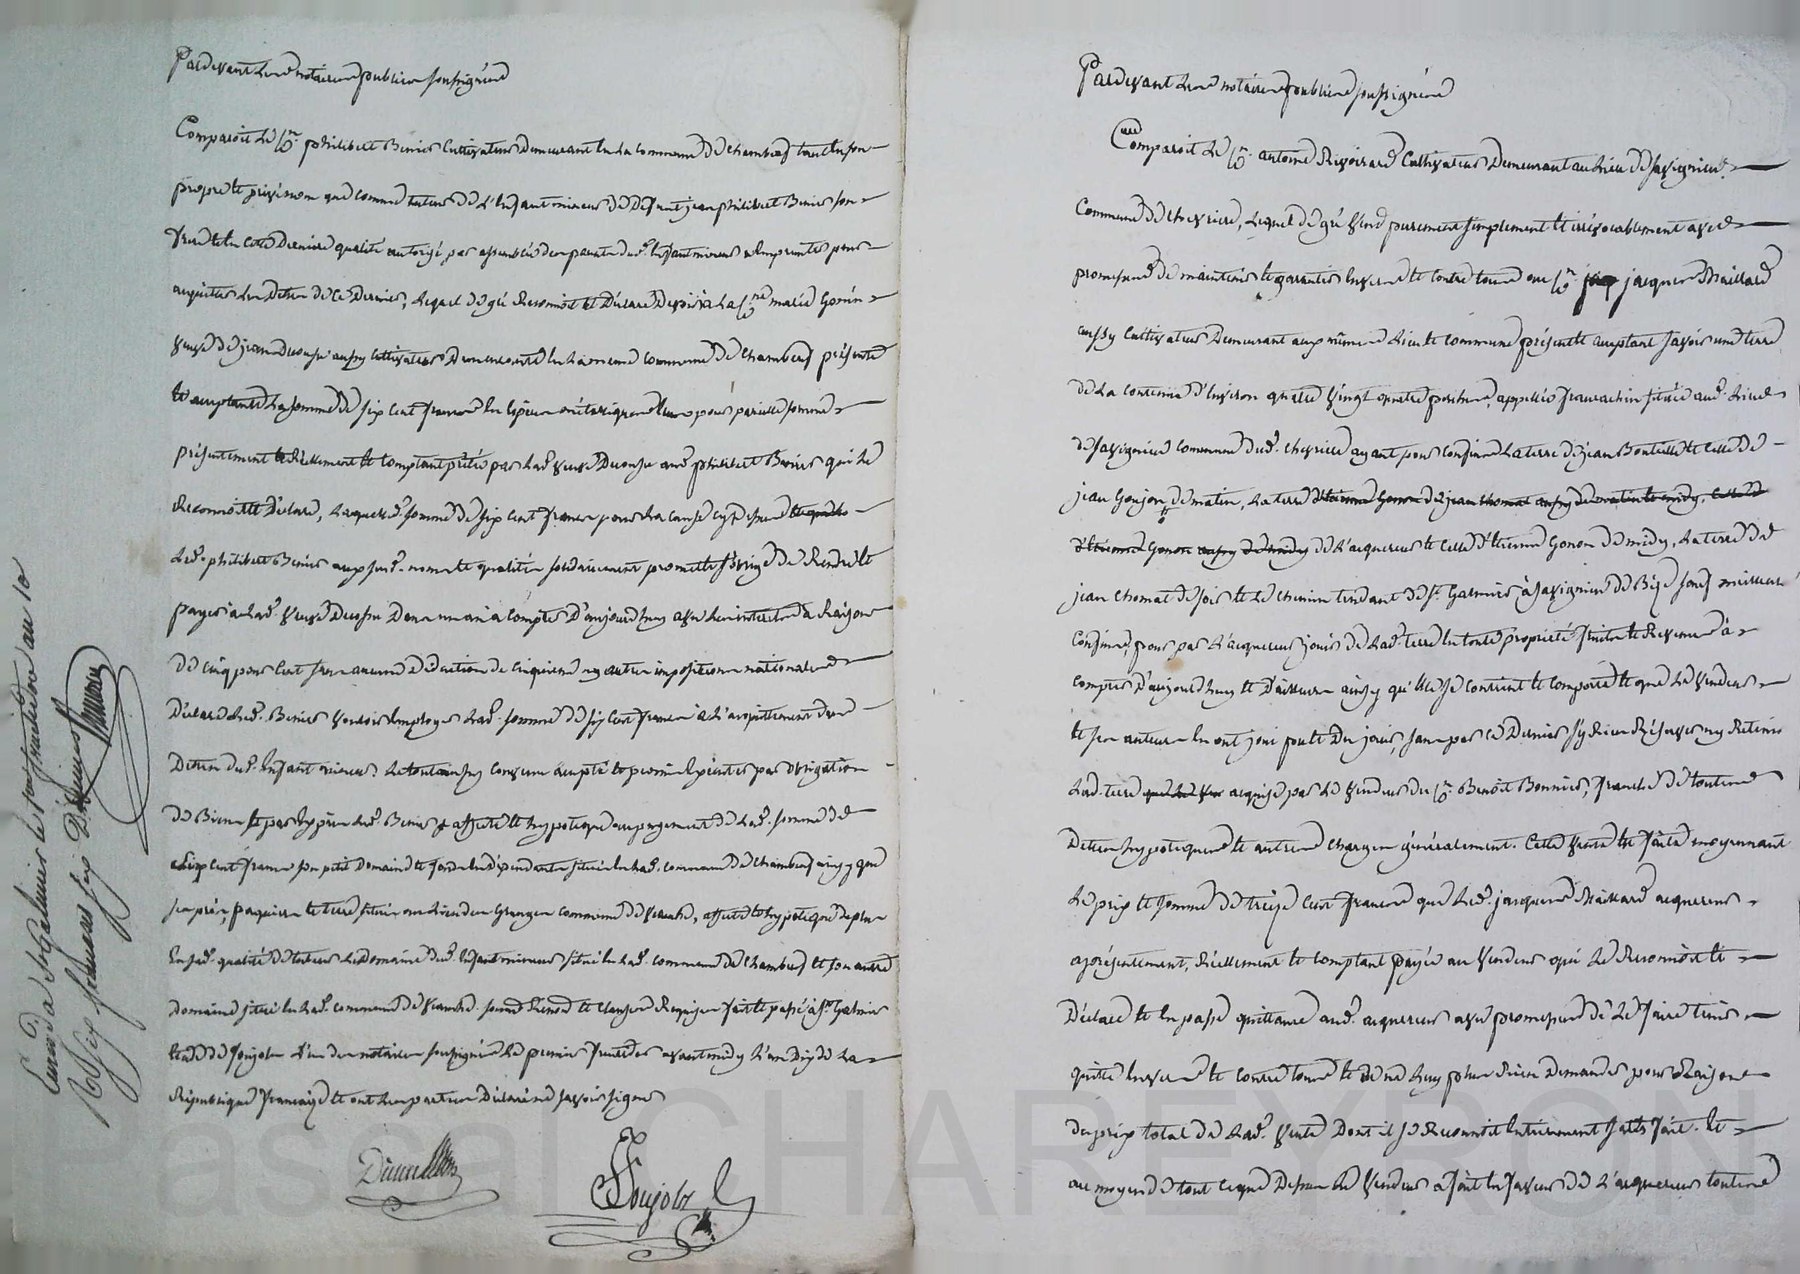 Pardevant les notaires publics soussignés
Comparoit le c.en philibert Benier cultivateur demeurant en la commune de Chambeuf tant en son
propre et privé nom que comme tuteur de l'enfant mineur de defunt jean philibert Benier son
frere et en cette derniere qualité autorisé par assemblée des parents dud. enfant mineur a l'emprunter pour
acquitter les dettes de ce dernier, lequel de gré reconnoit et déclare devoir à la c.ne marie Gonin
veuve de jean aussy cultivateur demeurante en la meme commune de Chambeuf présente
et acceptante la somme de six cent francs en espèces métalliques pour pareille somme
présentement réellement et comptant prêtée par lad. veuve aud. philibert Benier qui le
reconnoit et déclare, laquelle somme de six cent francs pour la cause cy dessus
led. philibert Benier aux susd. noms et qualités solidairement promet et s'oblige de rendre et
payer à lad. veuve dans un an à compter d'aujourd'huy avec les interets à raison
de cinq pour cent sans aucune deduction de cinquieme ny autres impositions nationales
Déclare led. Benier vouloir employer lad. somme de six cent francs à l'acquittement des
dettes dud. enfant mineur. le tout ainsy convenu accepté et promis exécuter par obligation
de biens et par exprès led. Benier affecte et hypoteque au payement de lad. somme de
six cent francs son petit domaine et fonds en dépendants situé en lad. commune de Chambeuf ainsy que
ses prés, paquiers et terres situés au lieu des Granges commune de veauche, affecte et hypoteque de plus
en sad. qualité de tuteur le domaine dud. enfant mineur situé en lad. commune de Chambeuf et son autre
domaine situé en lad. commune de veauche. fait et passé à s.t Galmier
etude de Soujols l'un des notaires soussignés le premier avant midy l'an dix de la
République francaise et ont les parties déclaré ne savoir signer
Soujols
Enrg. à st Galmier le an 10
Pardevant les notaires publics soussignés
Comparoit le c.en antoine Rivoirard cultivateur demeurant au lieu de savigneux
commune de chevriere, lequel de gré vend purement simplement et irrévocablement avec
promesse de maintenir et garantir envers et contre tous au c.en jacques Maillard
aussy cultivateur demeurant aux mêmes lieu et commune présent et acceptant savoir une terre
de la contenue d'environ quatre vingt quatre perches, appellée situé aud. lieu
de savigneux commune dud. chevriere ayant pour confins la terre de jean Bouteille et celle de
jean Goujon de matin, la terre d'étienne Gonon de jean thomas aussy de matin et midy, celle
d'étienne Gonon aussy de midy de l'acquereur et celle d'étienne Gonon de midy, la terre de
jean Chomat de soir et le chemin tendant de s.t Galmier à savigneux de bize sauf meilleurs
confins, pour par l'acquereur jouir de lad. terre en toute propriété fruits et revenus à
compter d'aujourd'huy et d'ailleurs ainsy qu'elle se contient et comporte et que le vendeur
et ses auteurs en ont joui pu et du jouir, sans par ce dernier s'y rien réserver ny retenir
Lad. terre acquise par le vendeur du c.en Benoit Bonnier, franche de toutes
dettes hypoteques et autres charges généralement. Cette vente est faite moyennant
le prix et somme de treize cent francs que led. jacques Maillard acquereur
a présentement, réellement et comptant payée au vendeur qui le reconnoit et
déclare et en passe quittance aud. acquereur avec promesse de le faire tenir
quitte envers et contre tous et de ne luy plus rien demander pour raison
du prix total de lad. vente dont il se reconnoit entierement satisfait. et
au moyen de tout ce que dessus le vendeur a fait en faveur de l'acquereur toutes
Pascal CHAREYRON